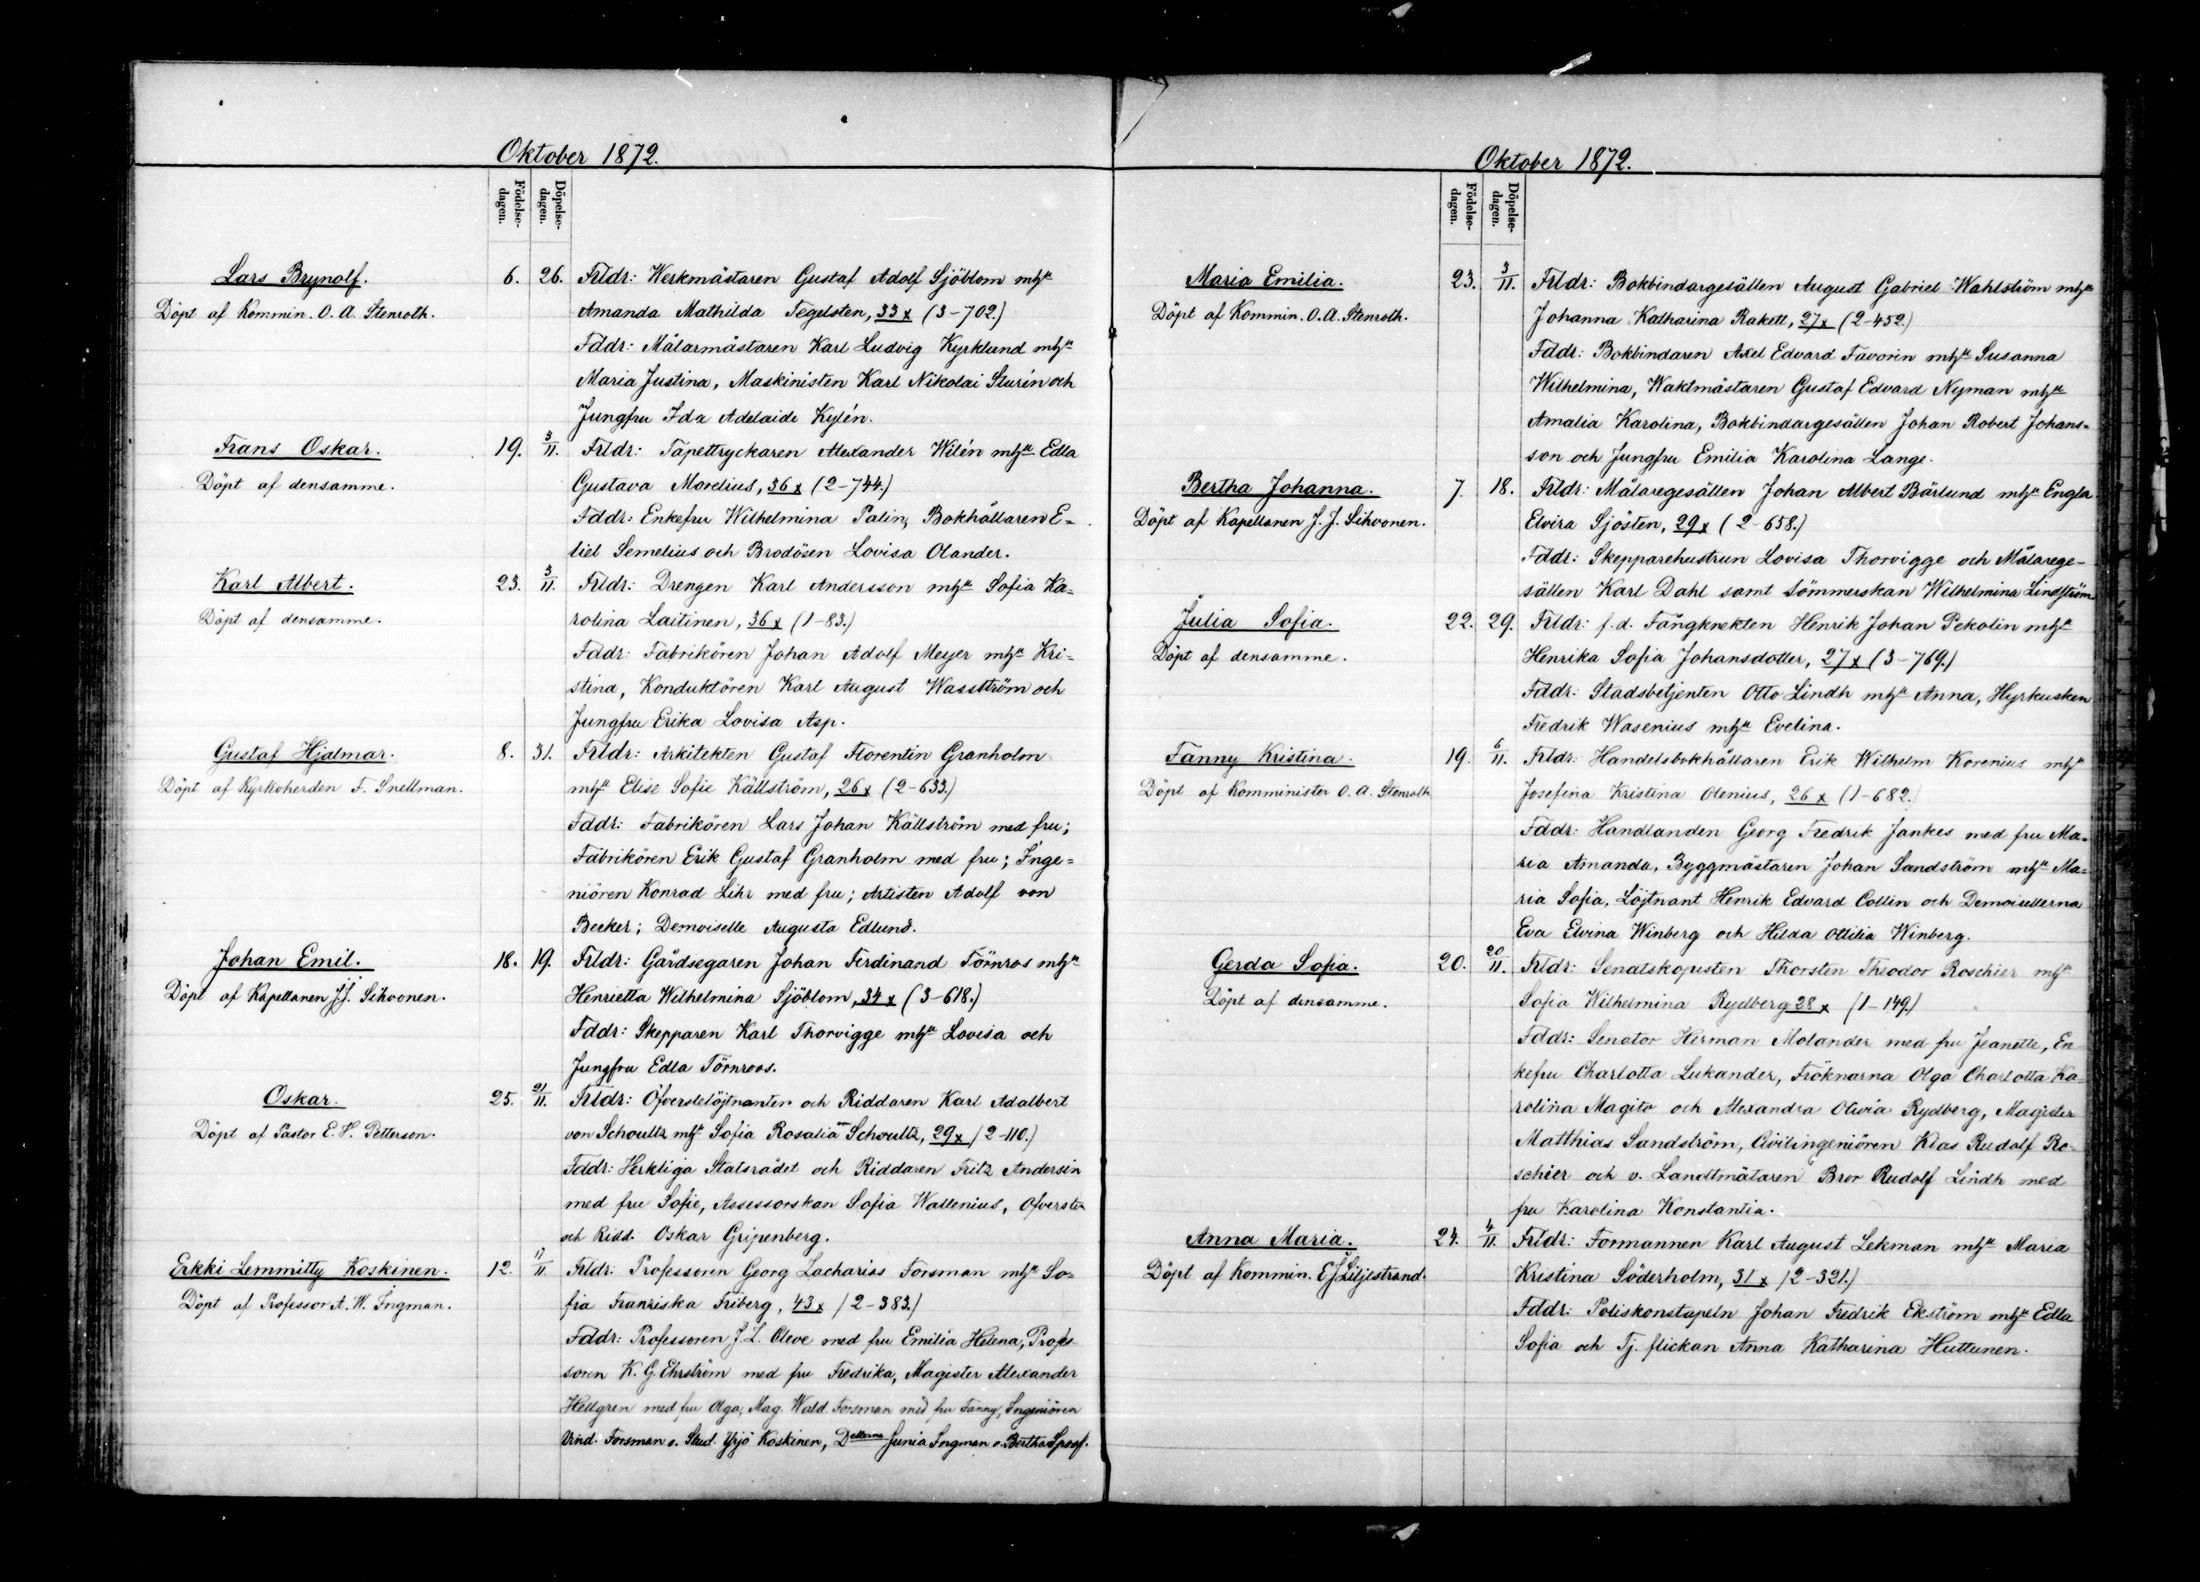 Oktober 1872.
Födelse-dagen.
Döpelse-dagen.
Lars Brynolf. 6. 26. Frldr: Werkmästaren Gustaf Adolf Sjöblom mhu
Döpt af Kommin. O. A. Stenroth. Amanda Mathilda Tegelsten, 33 x (3-702.)
Fddr: Målarmästaren Karl Ludvig Kyrklund mhu
Maria Justina, Maskinisten Karl Nikolai Sturén och
Jungfru Ida Adelaide Kylén.
Frans Oskar. 19. 3/11. Frldr: Tapettryckaren Alexander Wilén mhu Edla
Döpt af densamme. Gustava Morelius, 36 x (2-744.)
Fddr: Enkefru Wilhelmina Palin, Bokhållaren E-
liel Semelius och Brodösen Lovisa Olander.
Karl Albert. 23. 3/11. Frldr: Drengen Karl Andersson mhu Sofia Ka-
Döpt af densamme. rolina Laitinen, 36 x (1-83.)
Fddr: Fabrikören Johan Adolf Meyer mhu Kri-
stina, Konduktören Karl August Wasström och
Jungfru Erika Lovisa Asp.
Gustaf Hjalmar. 8. 31. Frldr: Arkitekten Gustaf Florentin Granholm
Döpt af Kyrkoherden F. Snellman. mhu Elise Sofie Källström, 26 x (2-633.)
Fddr: Fabrikören Lars Johan Källström med fru;
Fabrikören Erik Gustaf Granholm med fru; Inge-
niören Konrad Lihr med fru; Artisten Adolf von
Becker; Demoiselle Augusta Edlund.
Johan Emil. 18. 19. Frldr: Gårdsegaren Johan Ferdinand Törnros mhu
Döpt af Kapellanen J. J. Sihvonen. Henrietta Wilhelmina Sjöblom, 34 x (3-618.)
Fddr: Skepparen Karl Thorvigge mhu Lovisa och
Jungfru Edla Törnroos.
Oskar. 25. 21/11. Frldr: Öfverstelöjtnanten och Riddaren Karl Adalbert
Döpt af Pastor E. H. Petterson. von Schoultz mhu Sofia Rosalia von Schoultz, 29 x (2-110.)
Fddr: Verkliga Statsrådet och Riddaren Fritz Andersin
med fru Sofie, Assessorskan Sofia Wallenius, Öfversten
och Ridd. Oskar Gripenberg.
Erkki Lemmitty Koskinen. 12. 17/11. Frldr: Professoren Georg Zacharias Forsman mhu So-
Döpt af Professor A. W. Ingman. fia Franziska Friberg, 43 x (2-383.)
Fddr: Professoren J. L. Cleve med fru Emilia Helena, Profes
soren K. G. Ehrström med fru Fredrika, Magister Alexander
Hellgren med fru Olga, Mag. Wald. Forsman med fru Fanny, Ingeniören
Vind. Forsman o. Stud. Yrjö Koskinen, Dellerna Junia Ingman o. Bertha Spoof.
Oktober 1872.
Födelse-dagen.
Döpelse-dagen.
Maria Emilia. 23. 3/11. Frldr: Bokbindargesällen August Gabriel Wahlström mhu
Döpt af Kommin. O. A. Stenroth. Johanna Katharina Rakell, 27 x (2-452.)
Fddr: Bokbindaren Axel Edvard Favorin mhu Susanna
Wilhelmina, Waktmästaren Gustaf Edvard Nyman mhu
Amalia Karolina, Bokbindargesällen Johan Robert Johans-
son och Jungfru Emilia Karolina Lange.
Bertha Johanna. 7. 18. Frldr: Målaregesällen Johan Albert Bärlund mhu Engla
Döpt af Kapellanen J. J. Sihvonen. Elvira Sjösten, 29 x (2-658.)
Fddr: Skepparehustrun Lovisa Thorvigge och Målarege-
sällen Karl Dahl samt sömmerskan Wilhelmina Lindström
Julia Sofia. 22. 29. Frldr: f.d. Fångknekten Henrik Johan Pekolin mhu
Döpt af densamme. Henrika Sofia Johansdotter, 27 x (3-769.)
Fddr: Stadsbetjenten Otto Lindh mhu Anna, Hyrkusken
Fredrik Wasenius mhu Evelina.
Fanny Kristina. 19. 6/11. Frldr: Handelsbokhållaren Erik Wilhelm Korenius mhu
Döpt af Komminister O. A. Stenroth Josefina Kristina Olenius, 26 x (1-682.)
Fddr: Handlanden Georg Fredrik Jankes med fru Ma-
ria Amanda, Byggmästaren Johan Sandström mhu Ma-
ria Sofia, Löjtnant Henrik Edvard Collin och Demoisellerna
Eva Elvina Winberg och Hilda Ottilia Winberg.
Gerda Sofia. 20. 20/11. Frldr: Senatskopisten Thorsten Theodor Roschier mhu
Döpt af densamme. Sofia Wilhelmina Rydberg 28 x (1-149.)
Fddr: Senator Herman Molander med fru Jeanette, En
kefru Charlotta Lukander, Fröknarna Olga Charlotta Ka-
rolina Magito och Alexandra Olivia Rydberg, Magister
Matthias Sandström, Civilingeniören Klas Rudolf Ro-
schier och v. Landtmätaren Bror Rudolf Lindh med
fru Karolina Konstantia.
Anna Maria. 24. 4/11. Frldr: Formannen Karl August Lekman mhu Maria
Döpt af Kommin. E J Liljestrand. Kristina Söderholm, 31 x (2-321.)
Fddr: Poliskonstapeln Johan Fredrik Ekström mhu Edla
Sofia och Tj. flickan Anna Katharina Huttunen.